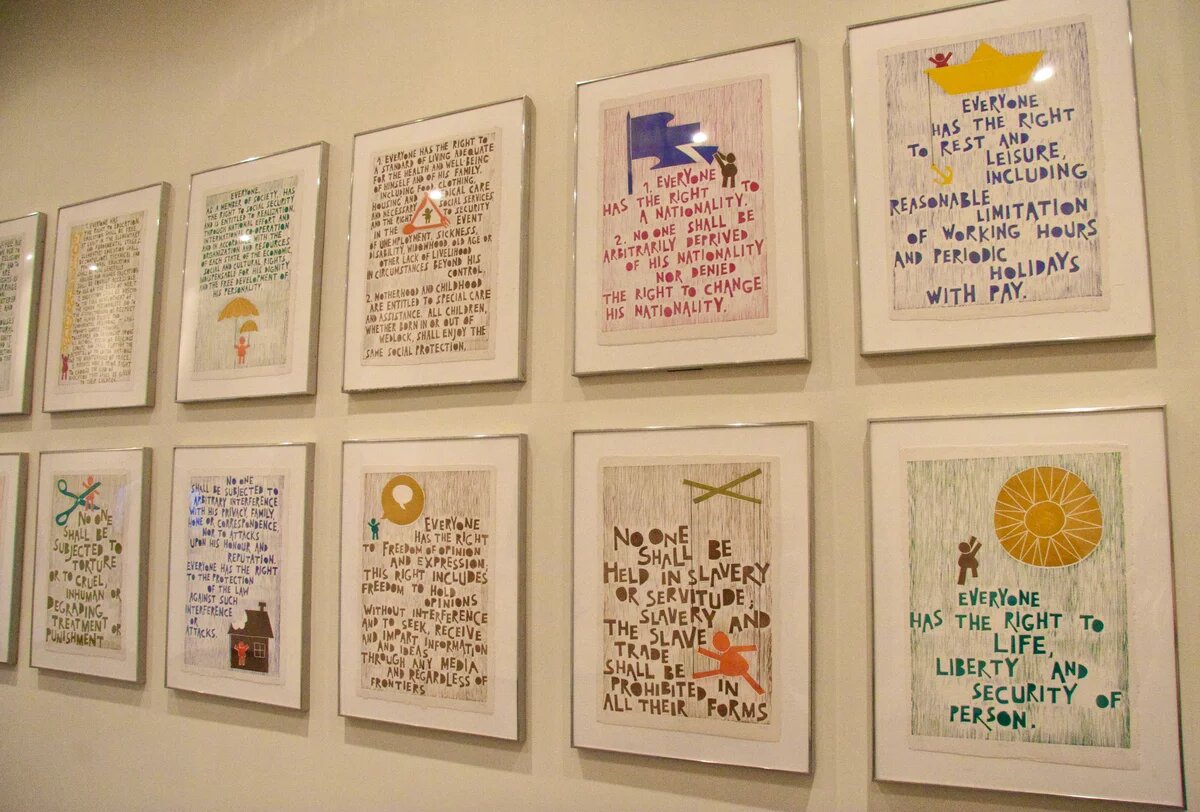 TO EDUCATION.
TO THEIR CHILDREN.
EVERYONE,
AS A MEMBER OF SOCIETY, HAS
THE RIGHT TO SOCIAL SECURITY
AND IS ENTITLED TO REALIZATION,
THROUGH NATIONAL EFFORT AND
INTERNATIONAL CO-OPERATION
AND IN ACCORDANCE WITH THE
ORGANIZATION AND RESOURCES
OF EACH STATE, OF THE ECONOMIC,
SOCIAL AND CULTURAL RIGHTS
INDISPENSABLE FOR HIS DIGNITY
AND THE FREE DEVELOPMENT OF
HIS PERSONALITY.
1. EVERYONE HAS THE RIGHT TO
A STANDARD OF LIVING ADEQUATE
FOR THE HEALTH AND WELL-BEING
OF HIMSELF AND OF HIS FAMILY,
INCLUDING FOOD, CLOTHING,
HOUSING AND MEDICAL CARE
AND NECESSARY SOCIAL SERVICES,
AND THE RIGHT TO SECURITY
IN THE EVENT
OF UNEMPLOYMENT, SICKNESS,
DISABILITY, WIDOWHOOD, OLD AGE OR
OTHER LACK OF LIVELIHOOD
IN CIRCUMSTANCES BEYOND HIS
CONTROL.
2. MOTHERHOOD AND CHILDHOOD
ARE ENTITLED TO SPECIAL CARE
AND ASSISTANCE. ALL CHILDREN,
WHETHER BORN IN OR OUT OF
WEDLOCK, SHALL ENJOY THE
SAME SOCIAL PROTECTION.
1. EVERYONE
HAS THE RIGHT TO
A NATIONALITY.
2. NO ONE SHALL BE
ARBITRARILY DEPRIVED
OF HIS NATIONALITY
NOR DENIED
THE RIGHT TO CHANGE
HIS NATIONALITY.
EVERYONE
HAS THE RIGHT
TO REST AND
LEISURE,
INCLUDING
REASONABLE
LIMITATION
OF WORKING HOURS
AND PERIODIC
HOLIDAYS
WITH PAY.
NO ONE
SHALL BE
SUBJECTED TO
TORTURE
OR TO CRUEL,
INHUMAN OR
DEGRADING
TREATMENT OR
PUNISHMENT
NO ONE
SHALL BE SUBJECTED TO
ARBITRARY INTERFERENCE
WITH HIS PRIVACY, FAMILY,
HOME OR CORRESPONDENCE,
NOR TO ATTACKS
UPON HIS HONOUR AND
REPUTATION.
EVERYONE HAS THE RIGHT
TO THE PROTECTION
OF THE LAW
AGAINST SUCH
INTERFERENCE
OR
ATTACKS.
EVERYONE
HAS THE RIGHT
TO FREEDOM OF OPINION
AND EXPRESSION;
THIS RIGHT INCLUDES
FREEDOM TO HOLD
OPINIONS
WITHOUT INTERFERENCE
AND TO SEEK, RECEIVE
AND IMPART INFORMATION
AND IDEAS
THROUGH ANY MEDIA
AND REGARDLESS OF
FRONTIERS
NO ONE
SHALL BE
HELD IN SLAVERY
OR SERVITUDE;
SLAVERY AND
THE SLAVE
TRADE
SHALL BE
PROHIBITED IN
ALL THEIR FORMS
EVERYONE
HAS THE RIGHT TO
LIFE,
LIBERTY AND
SECURITY OF
PERSON.